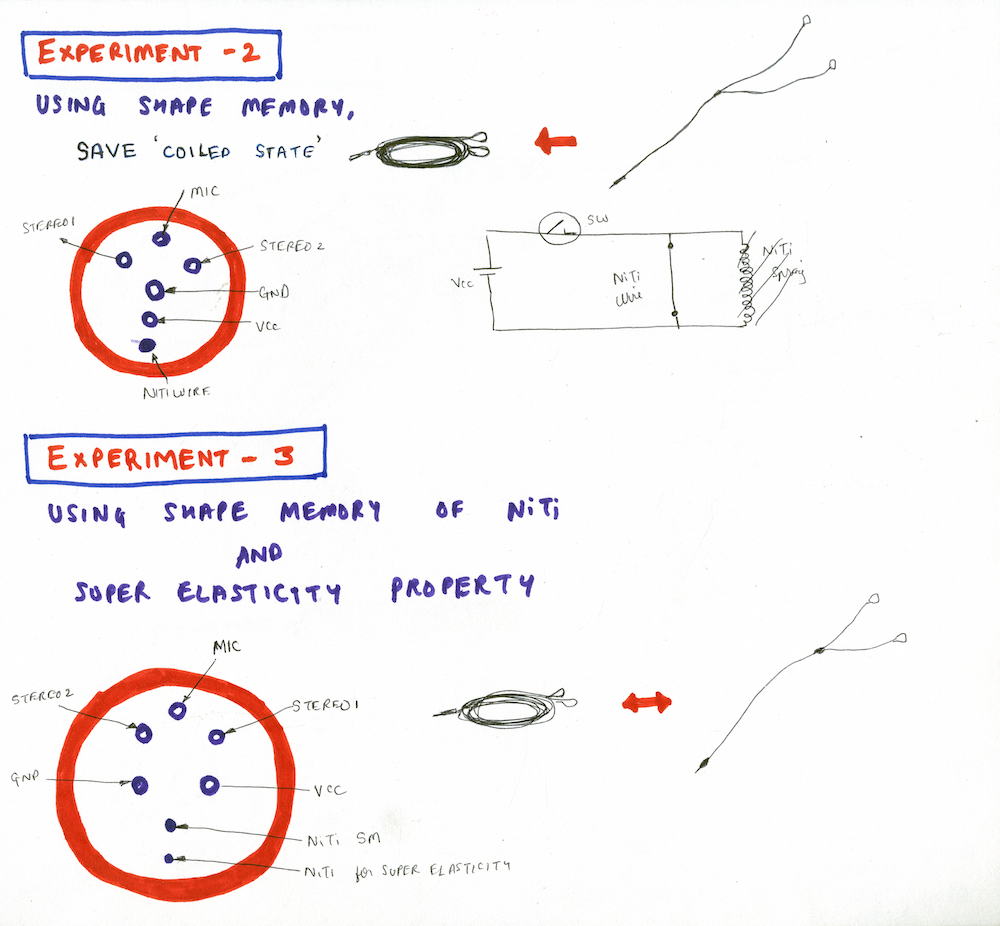 EXPERIMENT - 2
USING SHAPE MEMORY,
SAVE 'COILED STATE'
MIC
STEREO1
STEREO 2
GND
VCC
NITI WIRE
SW
VCC
NiTi
Wire
NiTi
EXPERIMENT - 3
USING SHAPE MEMORY OF NiTi
AND
SUPER ELASTICITY PROPERTY
MIC
STEREO2
STEREO1
GND
VCC
NiTi SM
NiTi for SUPER ELASTICITY